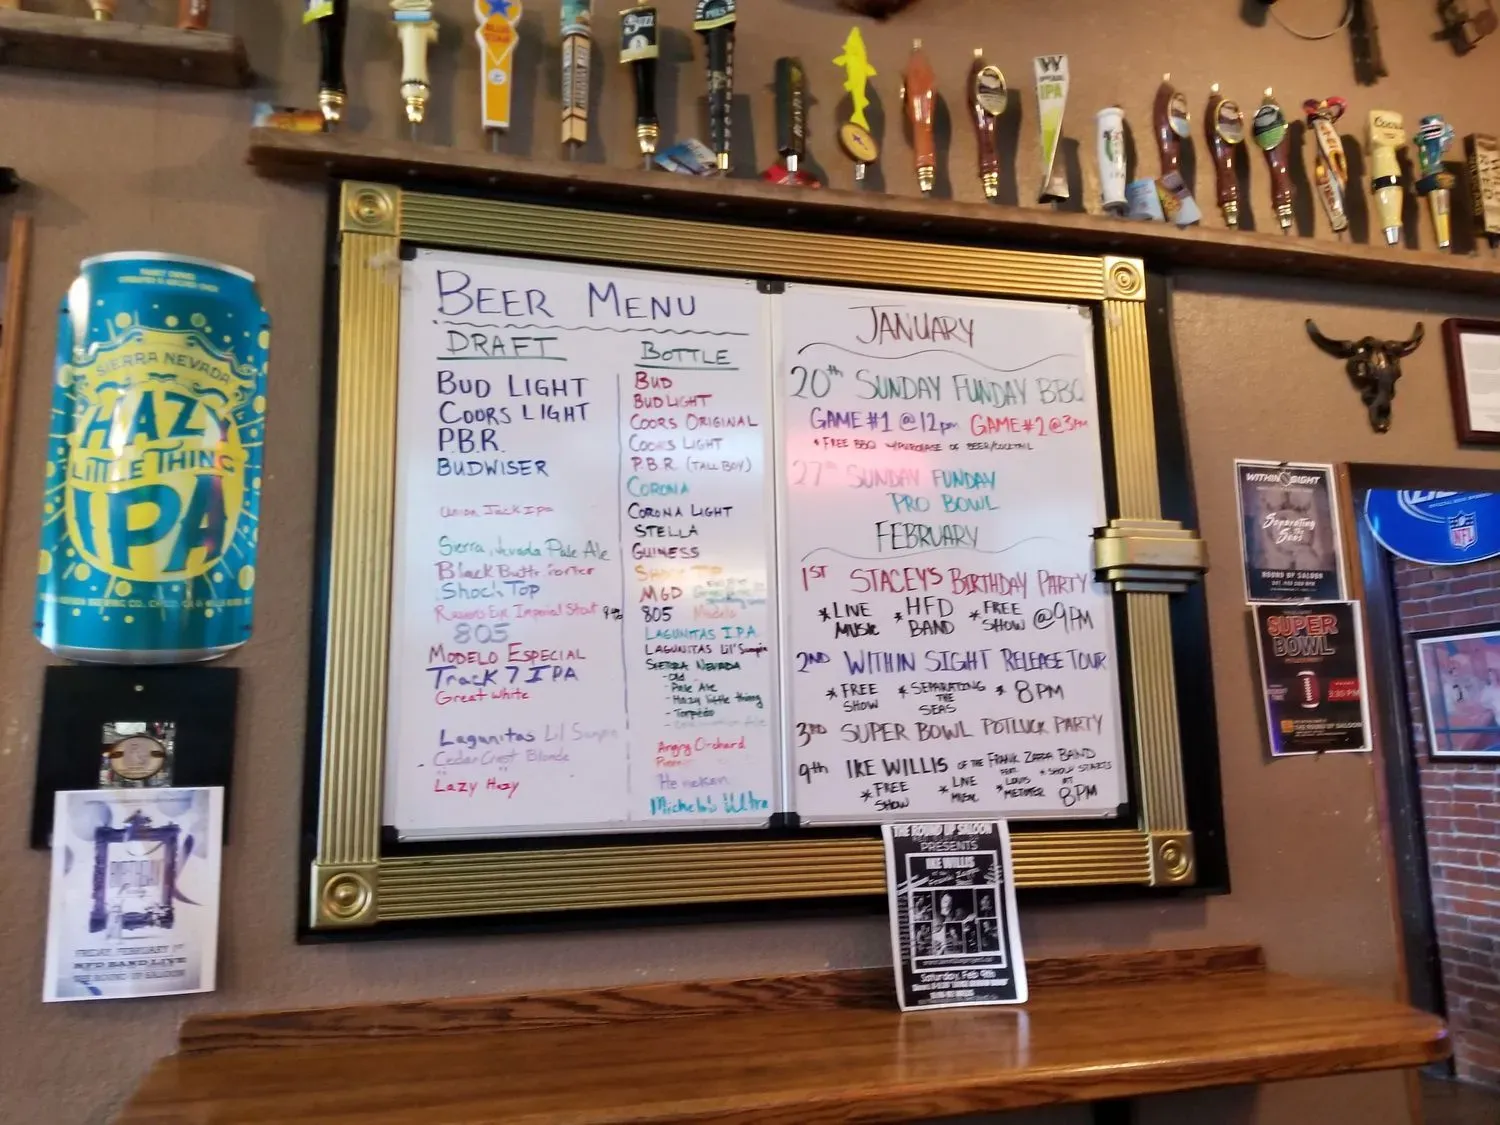 BEER MENU
DRAFT
BUD LIGHT
COORS LIGHT
P.B.R.
BUDWISER
Union Jack Ipa
Sierra Nevada Pale Ale
Black Butte Porter
Shock Top
Rasputins Eye Imperial Stout 9%
805
MODELO ESPECIAL
Track 7 IPA
Great White
Lagunitas Lil Sumpin
Cedar Crest Blonde
Lazy Hazy
BOTTLE
BUD
BUD LIGHT
COORS ORIGINAL
COORS LIGHT
P.B.R. (TALL BOY)
CORONA
CORONA LIGHT
STELLA
GUINESS
SHOCK TOP
MGD
805 Modelo
LAGUNITAS I.P.A.
LAGUNITAS Lil' Sumpin
SIERRA NEVADA
- Old
- Pale Ale
- Hazy little thing
- Torpedo
Angry Orchard
Heineken
Michelob Ultra
JANUARY
20th SUNDAY FUNDAY BBQ
GAME #1 @ 12pm GAME #2 @ 3PM
* FREE BBQ W/PURCHASE OF BEER/COCKTAIL
27th SUNDAY FUNDAY
PRO BOWL
FEBRUARY
1ST STACEY'S BIRTHDAY PARTY
* LIVE MUSIC * HFD BAND * FREE SHOW @ 9PM
2ND WITHIN SIGHT RELEASE TOUR
* FREE SHOW * SEPARATING THE SEAS * 8PM
3RD SUPER BOWL POTLUCK PARTY
9th IKE WILLIS OF THE FRANK ZAPPA BAND
* FREE SHOW * LIVE MUSIC * SHOW STARTS AT 8PM
SIERRA NEVADA
HAZY
LITTLE THING
IPA
FRIDAY FEBRUARY 1ST
HFD BAND LIVE
THE ROUND UP SALOON
THE ROUND UP SALOON
PRESENTS
IKE WILLIS
Saturday, Feb 9th
WITHIN SIGHT
Separating the Seas
ROUND UP SALOON
SUPER
BOWL
3:30 PM
THE ROUND UP SALOON
NFL
IPA
Coors